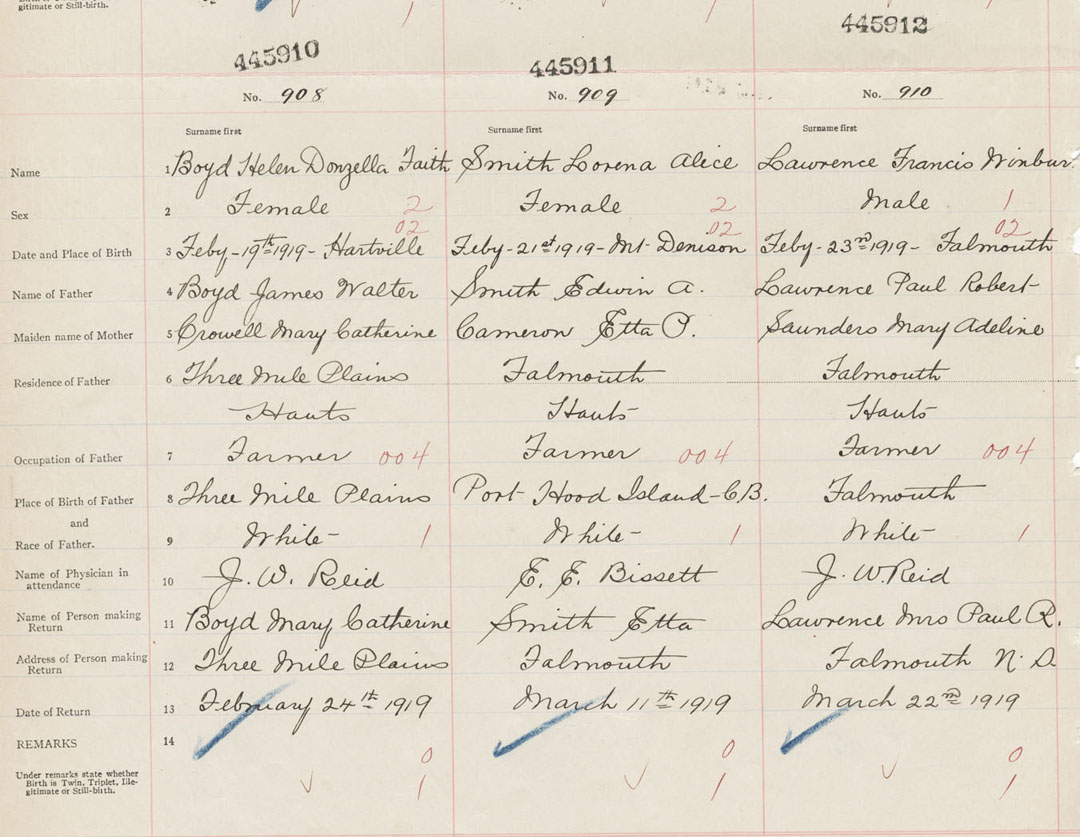 gitimate or Still-birth.
1
1
445910 445911 445912
No. 908 No. 909 No. 910
Surname first Surname first Surname first
Name 1 Boyd Helen Donzella Faith Smith Lorena Alice Lawrence Francis Winbur
Sex 2 Female 2 Female 2 Male 1
02 02 02
Date and Place of Birth 3 Feby-19th 1919- Hartville Feby-21st 1919-Mt Denison Feby-23rd 1919- Falmouth
Name of Father 4 Boyd James Walter Smith Edwin A. Lawrence Paul Robert
Maiden name of Mother 5 Crowell Mary Catherine Cameron Etta P. Saunders Mary Adeline
Residence of Father 6 Three Mile Plains Falmouth Falmouth
Hants Hants Hants
Occupation of Father 7 Farmer 004 Farmer 004 Farmer 004
Place of Birth of Father 8 Three Mile Plains Port Hood Island-C.B. Falmouth
and
Race of Father. 9 White- 1 White- 1 White- 1
Name of Physician in
attendance 10 J. W. Reid E. E. Bissett J. W. Reid
Name of Person making
Return 11 Boyd Mary Catherine Smith Etta Lawrence Mrs Paul R.
Address of Person making
Return 12 Three Mile Plains Falmouth Falmouth N. S.
Date of Return 13 February 24th 1919 March 11th 1919 March 22nd 1919
REMARKS 14
0 0 0
Under remarks state whether
Birth is Twin, Triplet, Ille-
gitimate or Still-birth. 1 1 1